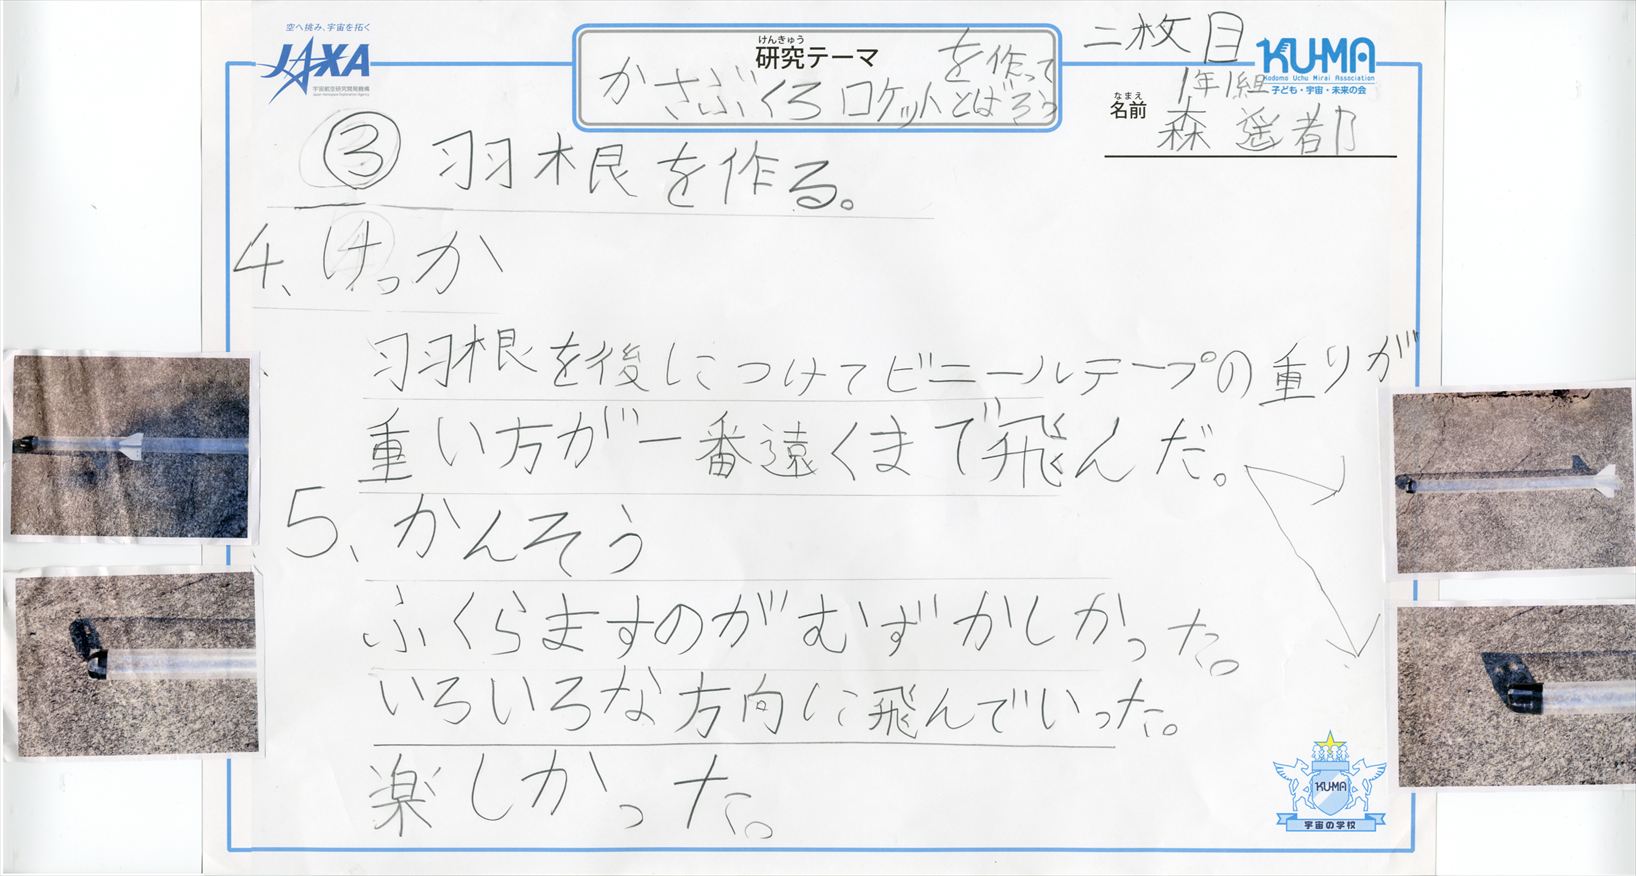 空へ挑み、宇宙を拓く
JAXA
宇宙航空研究開発機構
Japan Aerospace Exploration Agency
けんきゅう
研究テーマ
かさぶくろロケットを作ってとばろう
二枚目
KU-MA
Kodomo Uchu Mirai Association
子ども・宇宙・未来の会
1年1組
なまえ
名前 森 遥都
③ 羽根を作る。
4、けっか
羽根を後につけてビニールテープの重りが
重い方が一番遠くまで飛んだ。
5、かんそう
ふくらますのがむずかしかった。
いろいろな方向に飛んでいった。
楽しかった。
KU-MA
宇宙の学校